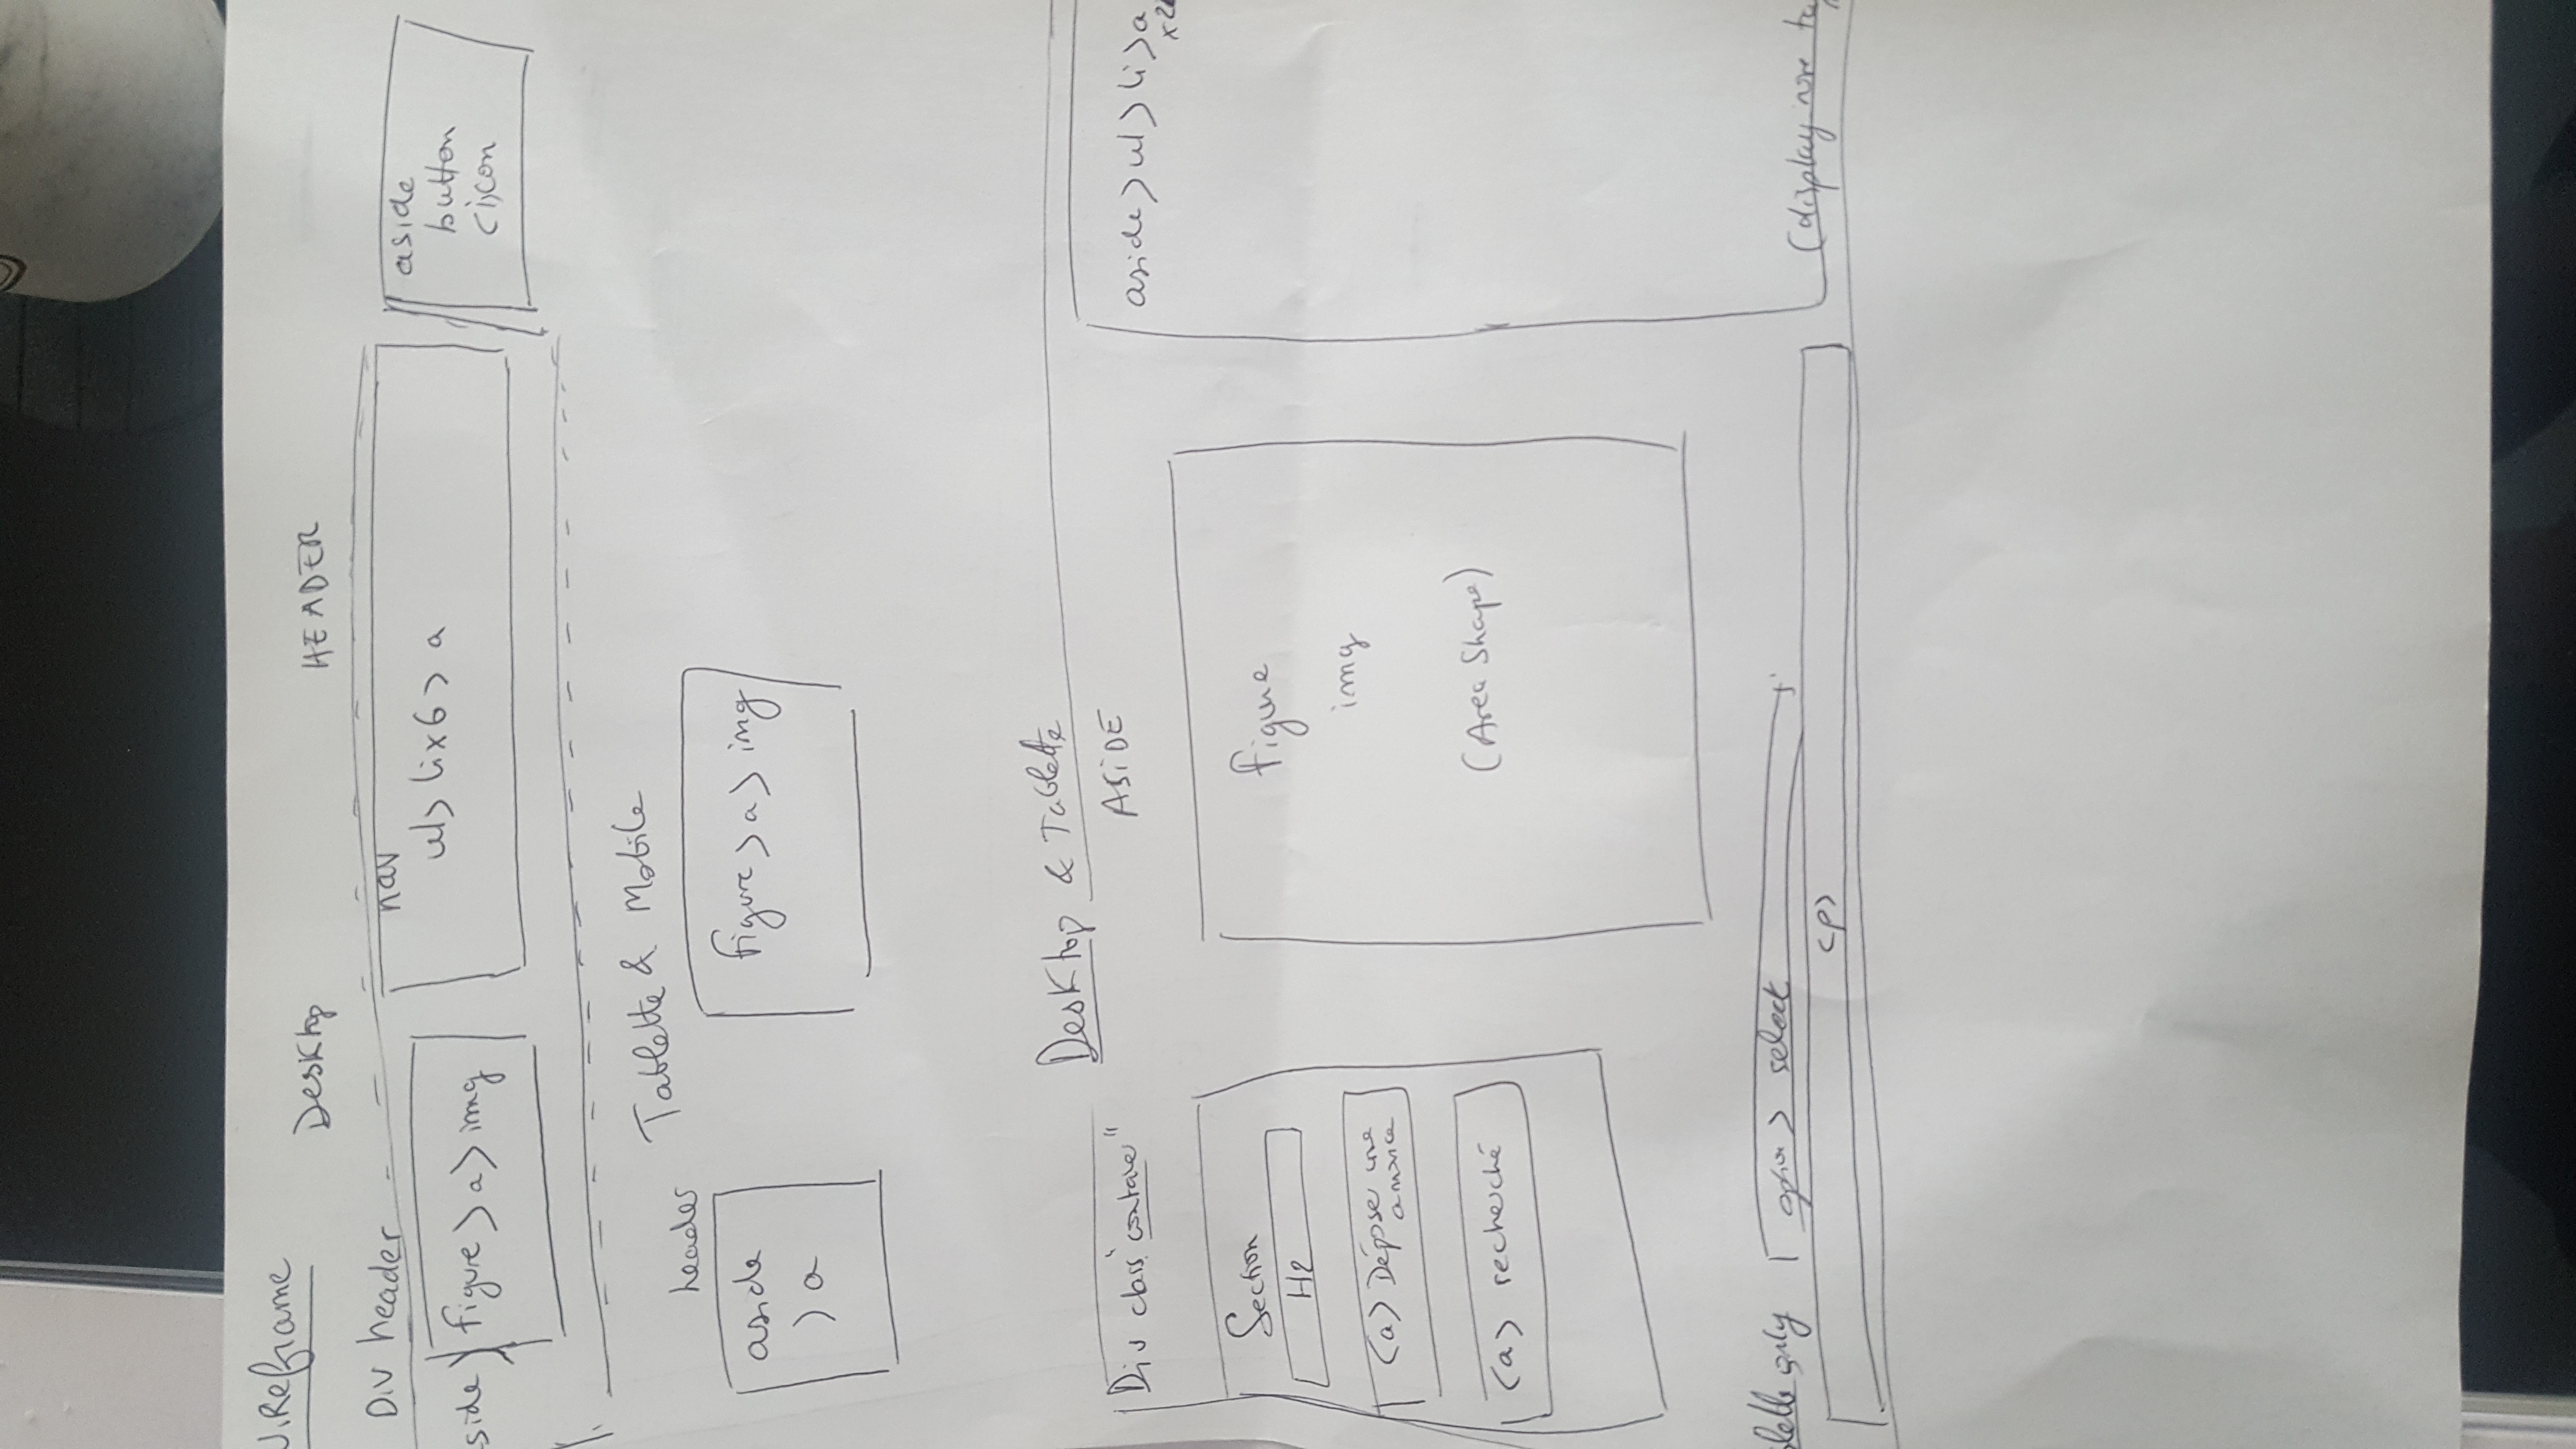 W.Reframe
Desktop HEADER
Div header
side > figure > a > img
nav
ul > li x 6 > a
aside
button
<i>con
Tablette & Mobile
header
aside
> a
figure > a > img
Desktop & Tablette
ASIDE
Div class "
Section
H2
<a> Dépose une
annonce
<a> recherché
figure
img
(Area Shape)
aside > ul > li > a
x2
only
> select
<p>
(display none